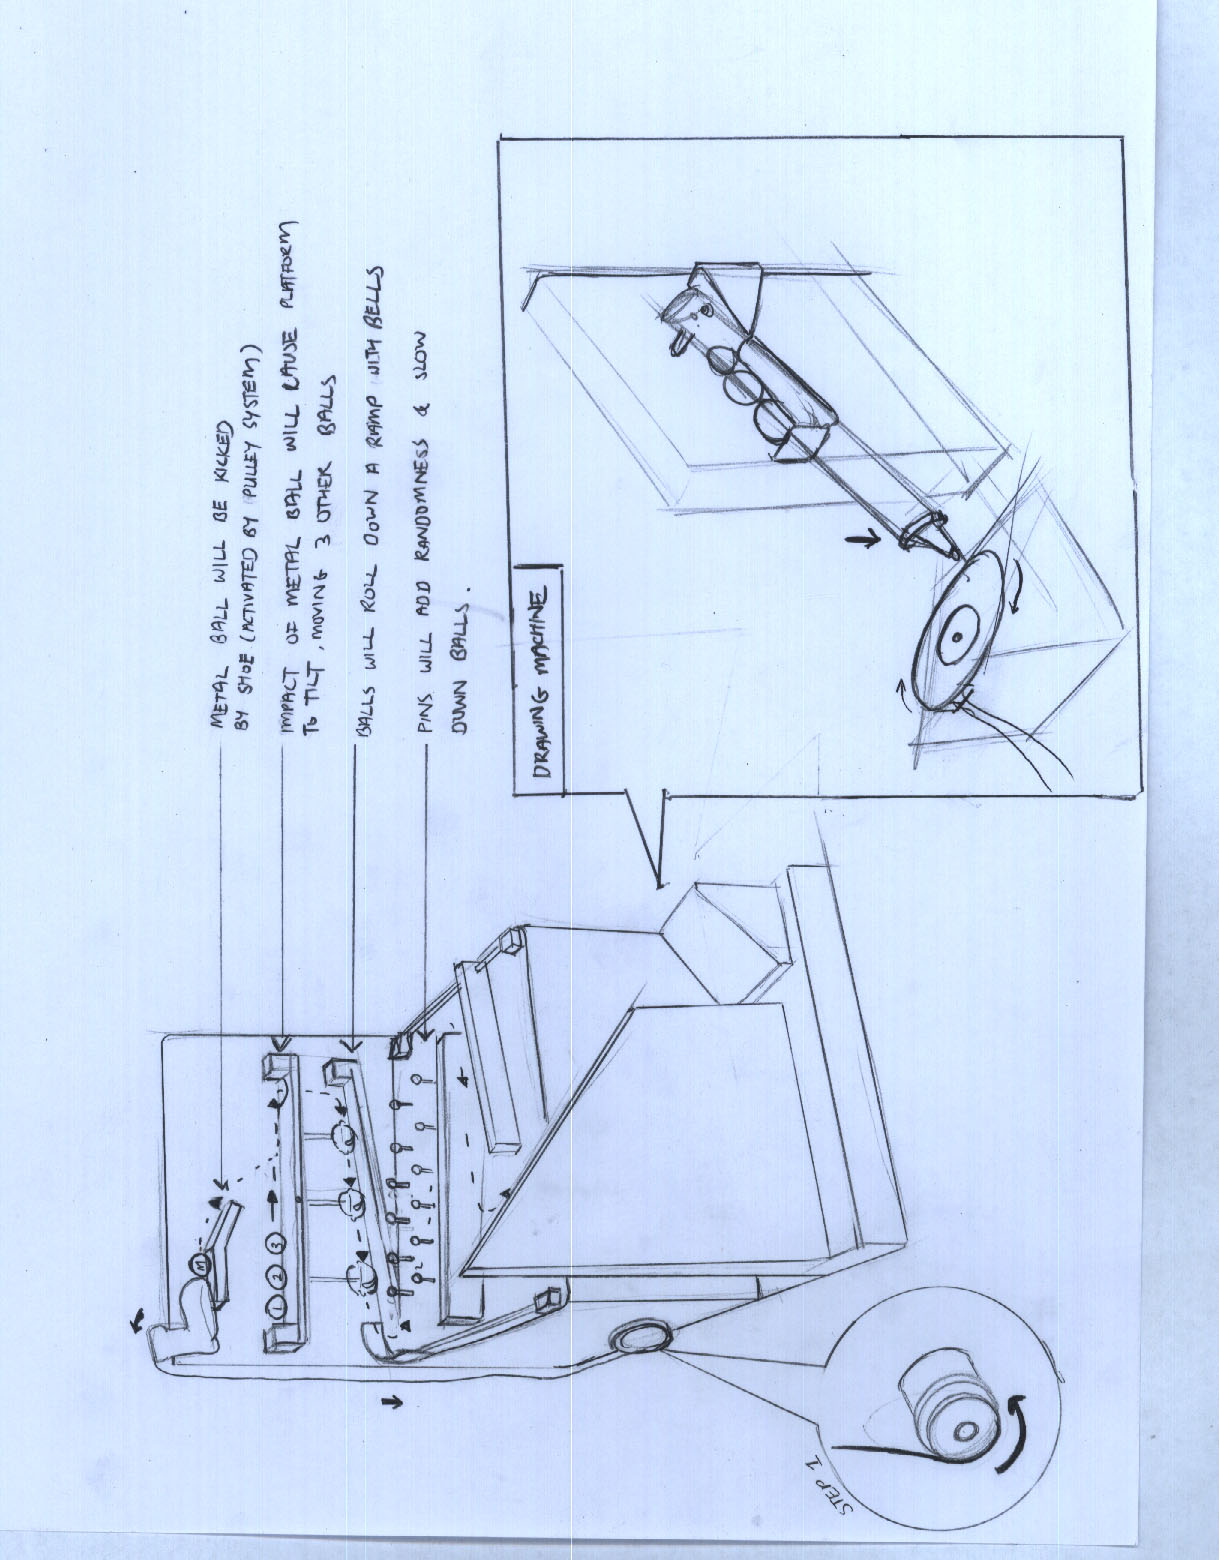 METAL BALL WILL BE KICKED
BY SHOE (ACTIVATED BY PULLEY SYSTEM)
IMPACT OF METAL BALL WILL CAUSE PLATFORM
TO TILT, MOVING 3 OTHER BALLS
BALLS WILL ROLL DOWN A RAMP WITH BELLS
PINS WILL ADD RANDOMNESS & SLOW
DOWN BALLS.
M
1 2 3
DRAWING MACHINE
STEP 1